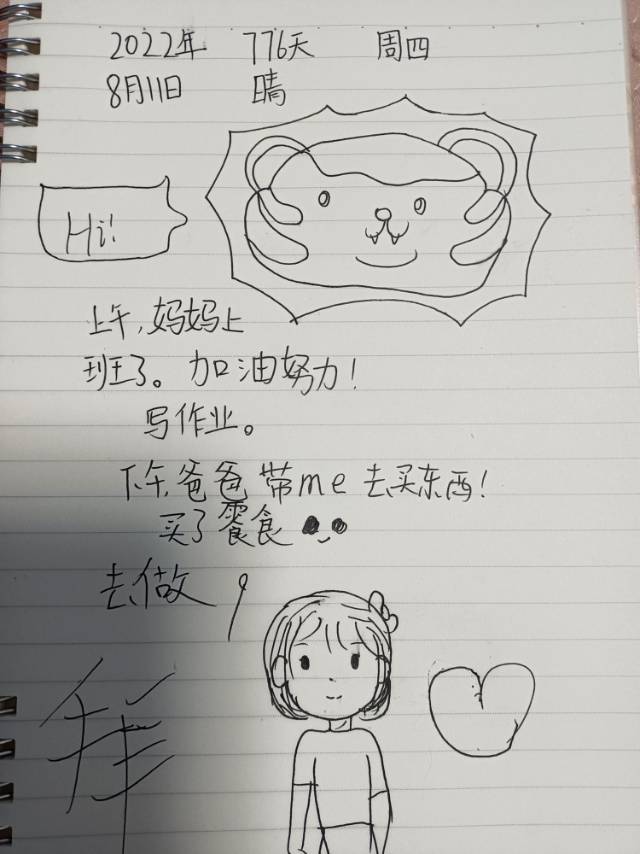 2022年 776天 周四
8月11日 晴
Hi!
上午,妈妈上
班了。加油努力!
写作业。
下午,爸爸带me去买东西!
买了零食
去做